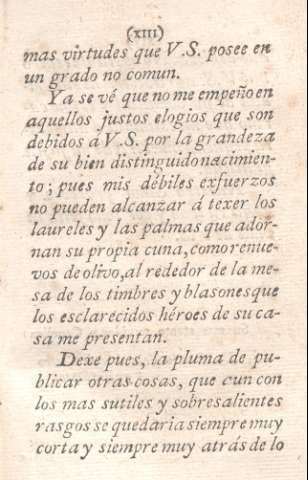 (XIII)
mas virtudes que V.S. posee en
un grado no comun.
Ya se vé que no me empeño en
aquellos justos elogios que son
debidos á V.S. por la grandeza
de su bien distinguido nacimien-
to; pues mis débiles exfuerzos
no pueden alcanzar á texer los
laureles y las palmas que ador-
nan su propia cuna, como renue-
vos de olivo, al rededor de la me-
sa de los timbres y blasones que
los esclarecidos héroes de su ca-
sa me presentan.
Dexe pues, la pluma de pu-
blicar otras cosas, que cun con
los mas sutiles y sobresalientes
rasgos se quedaria siempre muy
corta y siempre muy atrás de lo